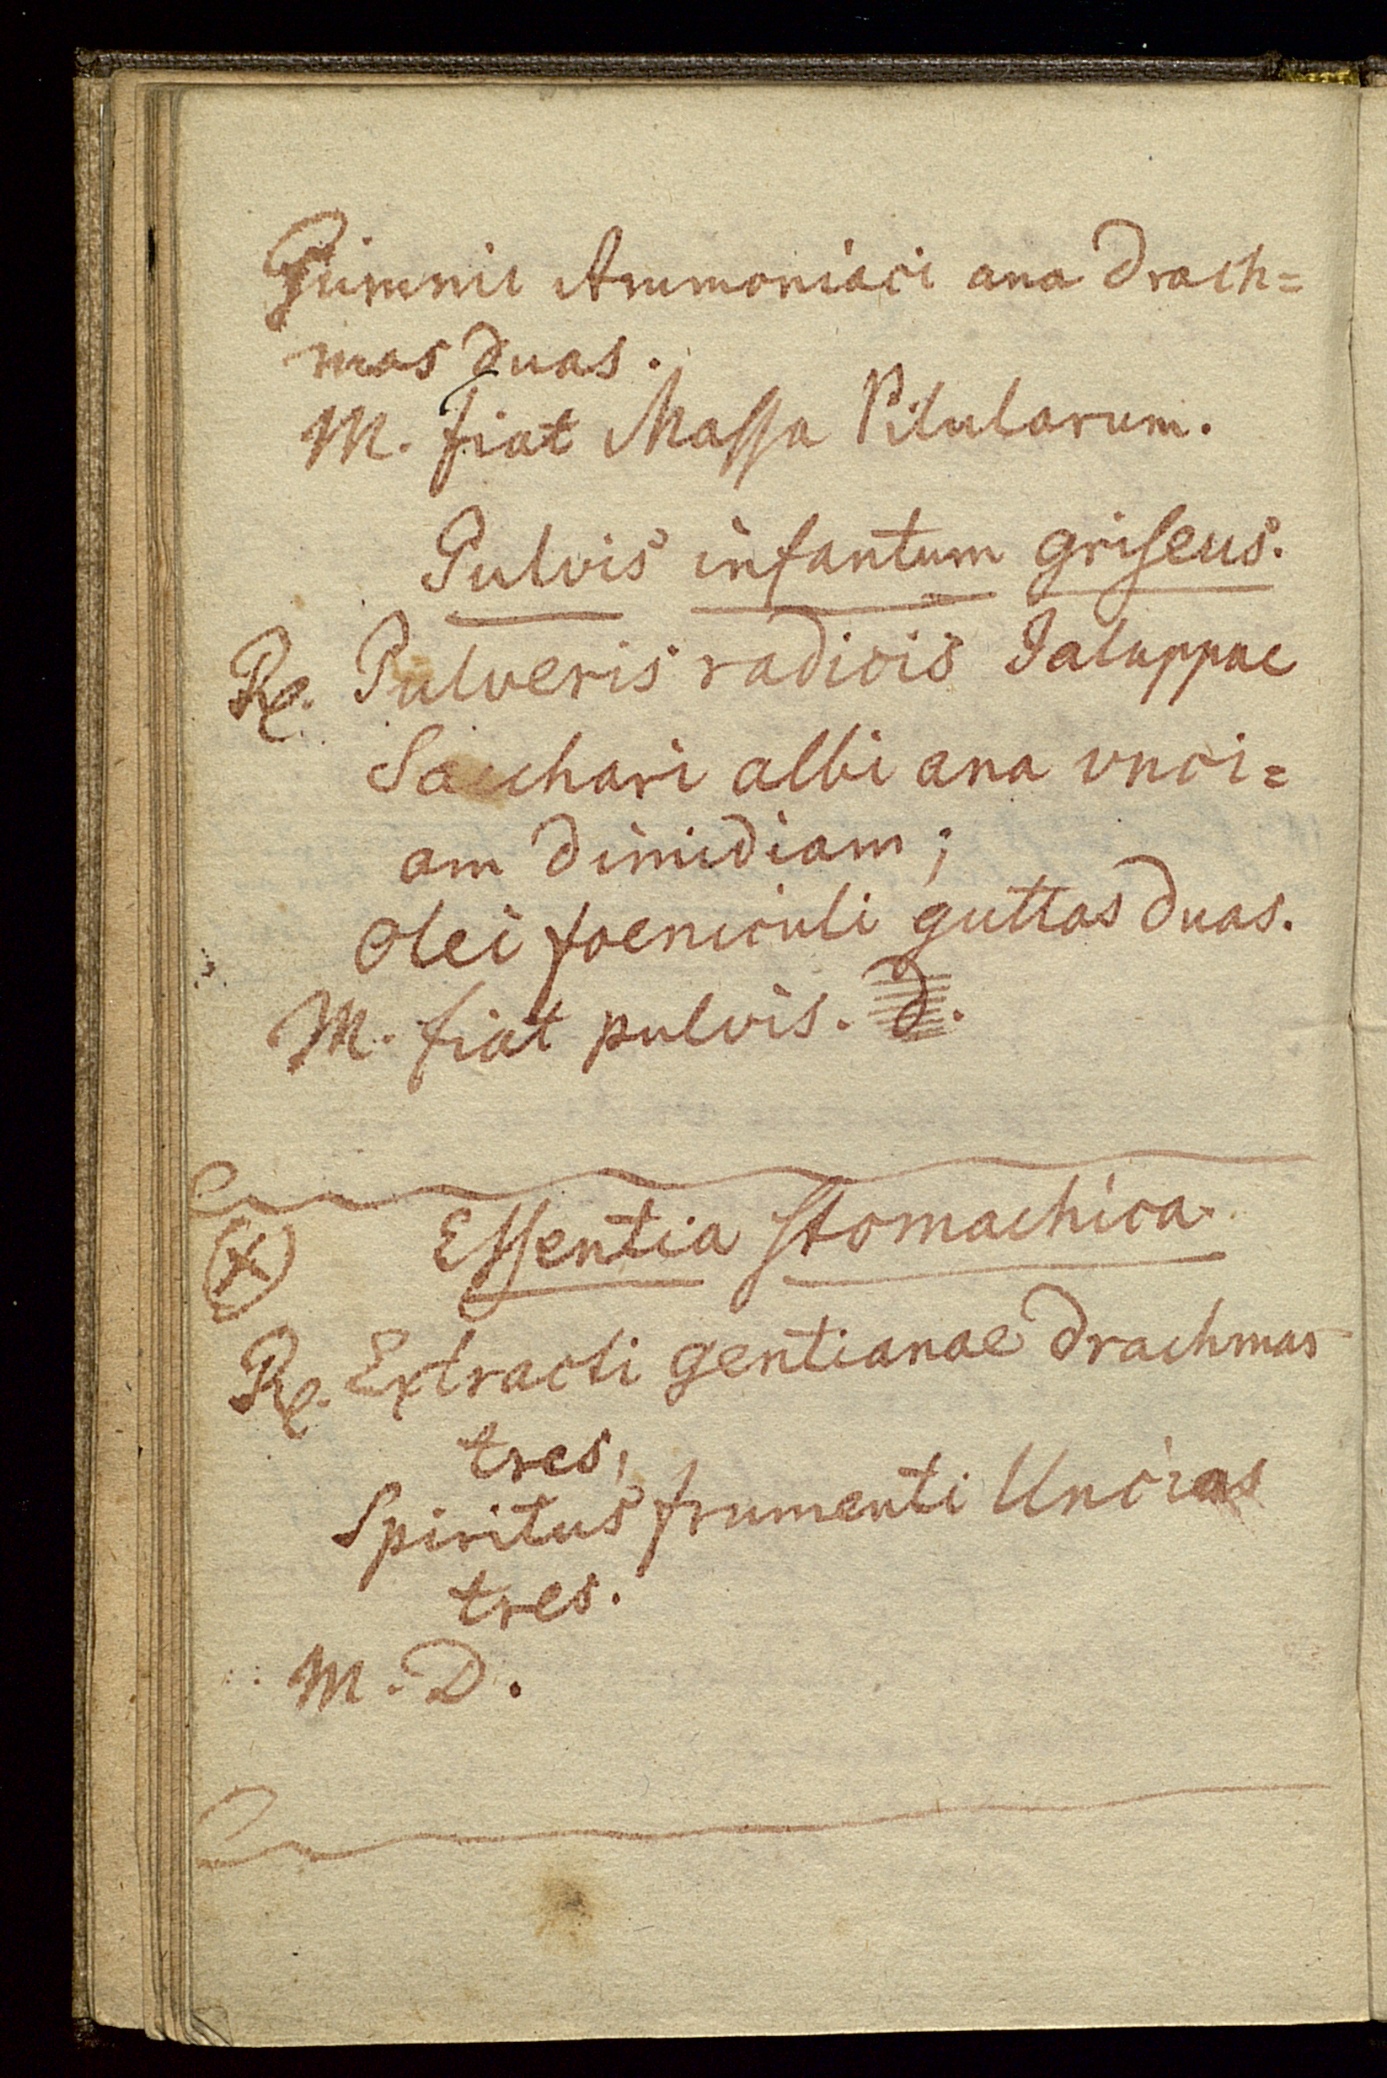 Gummii Ammoniaci ana drach=
mas duas.
M. fiat Massa Pilularum.
Pulvis infantum griseus.
℞. Pulveris radicis Jaluppae
Sacchari albi ana unci=
am dimidiam;
Olei foeniculi guttas duas.
M. fiat pulvis. d.
Essentia stomachica.
℞. Extracti gentianae drachmas
tres,
Spiritus frumenti Uncias
tres.
M. D.